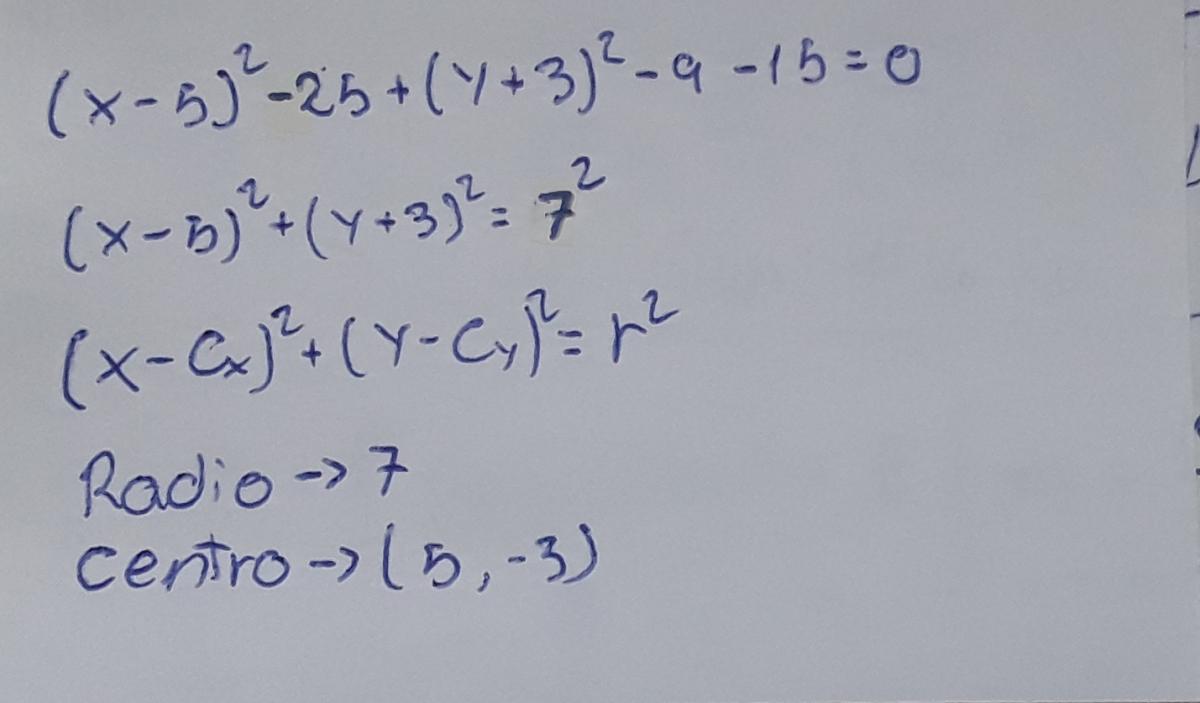 (x-5)²-25+(y+3)²-9-15=0
(x-5)²+(y+3)²=7²
(x-Cx)²+(y-Cy)²=r²
Radio->7
centro->(5,-3)